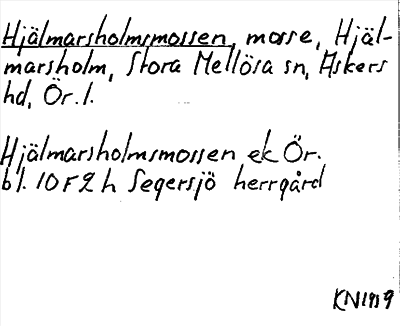 Hjälmarsholmsmossen, mosse, Hjäl-
marsholm, Stora Mellösa sn, Askers
hd, Ör. l.
Hjälmarsholmsmossen ek Ör.
bl. 10F2h Segersjö herrgård